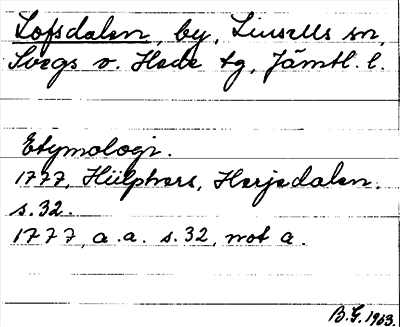 Lofsdalen, by, Linsells sn,
Svegs o. Hede tg, Jämtl. l.
Etymologi.
1777, Hülphers, Herjedalen.
s. 32.
1777, a. a. s. 32, not a.
B.G. 1963.